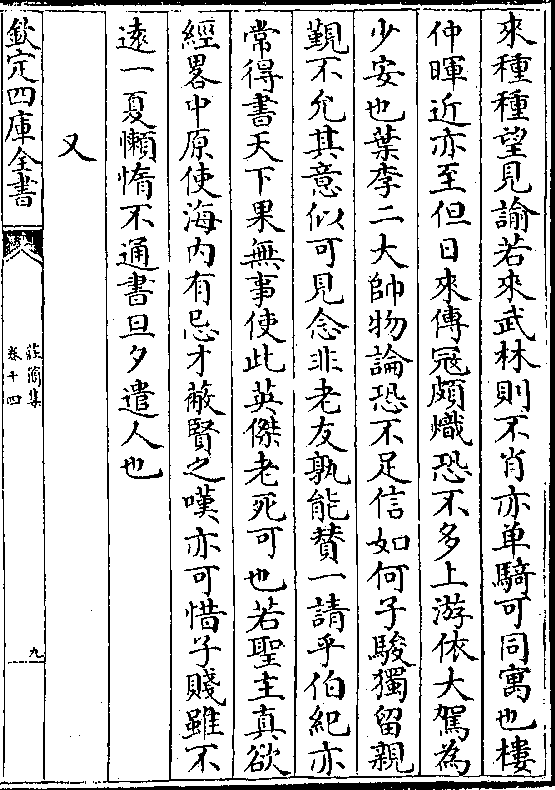 來種種望見諭若來武林則不肖亦单騎可同寓也樓
仲暉近亦至但日來傳冦頗熾恐不多上游依大駕為
少安也葉李二大帥物論恐不足信如何子駿獨留親
覲不允其意似可見念非老友孰能賛一請乎伯紀亦
常得書天下果無事使此英傑老死可也若聖主真欲
經畧中原使海内有忌才蔽賢之嘆亦可惜子賤雖不
逺一夏懶惰不通書旦夕遣人也
又
欽定四庫全書
莊簡集
卷十四
九